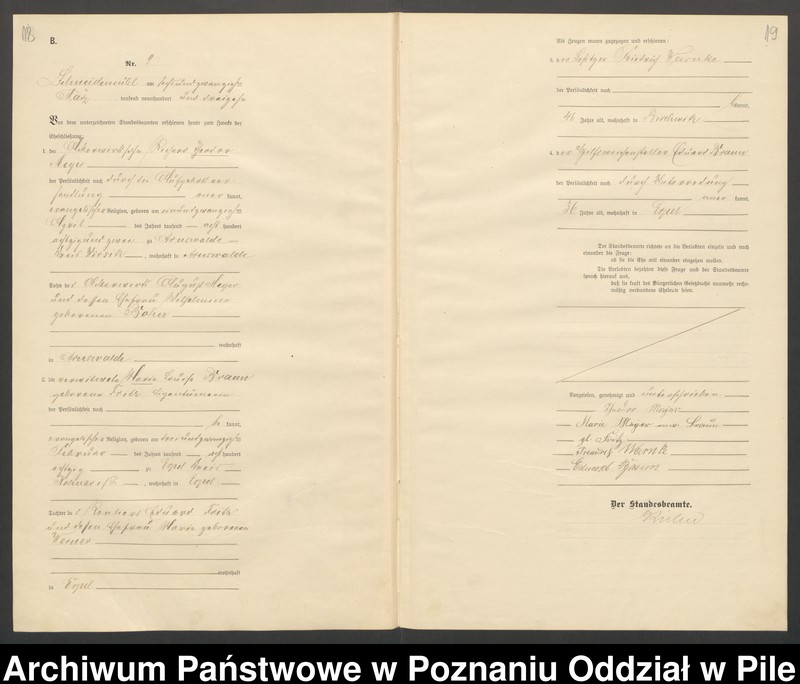 118
B.
Nr. 9
Schneidemühl am sechsundzwanzigsten
März tausend neunhundert und dreizehn
Vor dem unterzeichneten Standesbeamten erschienen heute zum Zwecke der
Eheschließung:
1. der
Meyer
der Persönlichkeit nach durch die Aufgebotsver-
handlung
kannt,
evangelischer Religion, geboren am
April des Jahres tausend acht hundert
achtzig und zwei zu Arnswalde
Kreis, wohnhaft in Arnswalde
Sohn des August Meyer
und dessen Ehefrau Wilhelmine
geborenen
wohnhaft
in Arnswalde
2. die verwitwete Marie Louise Braun
geborene Fritz Eigentümerin
der Persönlichkeit nach
be kannt,
evangelischer Religion, geboren am
Februar des Jahres tausend acht hundert
achtzig zu Erpel Kreis
Kolmar i/P., wohnhaft in Erpel
Tochter des Rentiers Eduard Fritz
und dessen Ehefrau Marie geborenen
Werner
wohnhaft
in Erpel
19
Als Zeugen waren zugezogen und erschienen:
3. der Besitzer Friedrich Warnke
der Persönlichkeit nach
be kannt,
46 Jahre alt, wohnhaft in
4. der Hilfsweichensteller Eduard Braun
der Persönlichkeit nach durch Unterredung
aner kannt,
36 Jahre alt, wohnhaft in Erpel
Der Standesbeamte richtete an die Verlobten einzeln und nach
einander die Frage:
ob sie die Ehe mit einander eingehen wollen.
Die Verlobten bejahten diese Frage und der Standesbeamte
sprach hierauf aus,
daß sie kraft des Bürgerlichen Gesetzbuchs nunmehr recht-
mäßig verbundene Eheleute seien.
Vorgelesen, genehmigt und unterschrieben:
Theodor Meyer
Marie Meyer verw. Braun
gb. Fritz
Friedrich Warnke
Eduard Braun
Der Standesbeamte.
Archiwum Państwowe w Poznaniu Oddział w Pile